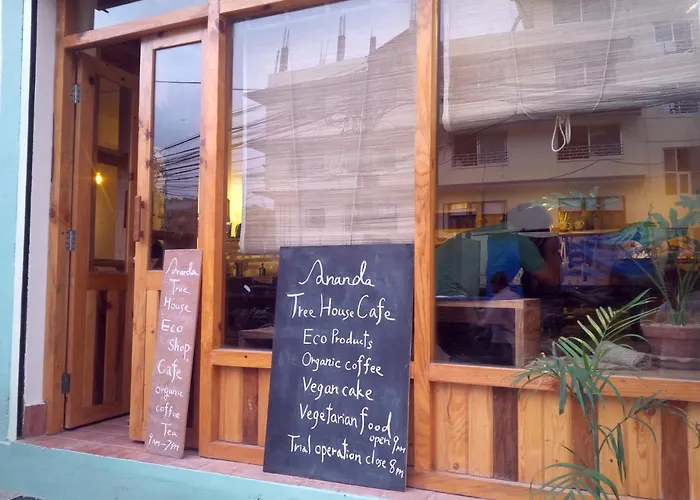 Ananda
Tree
House
Eco
Shop,
Cafe
organic
coffue
Tea
9AM-7PM
Ananda
Tree House Cafe
Eco Products
Organic coffee
Vegan cake
Vegetarian food
open 9AM
Trial operation close 8PM